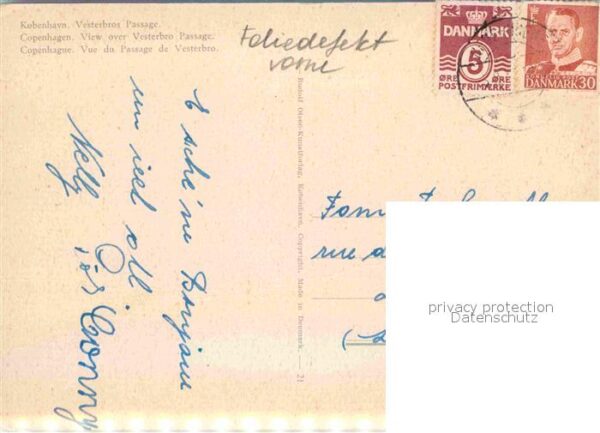 København. Vesterbros Passage.
Copenhagen. View over Vesterbro Passage.
Copenhague. Vue du Passage de Vesterbro.
Foliedefekt
vorne
DANMARK
5
ØRE ØRE
POSTFRIMÆRKE
DANMARK 30
Rudolf Olsen Kunstforlag, København, Copyright. Made in Denmark. — 21
E schéine Bonjour
vun iech all
Nelly
Conny
rue
privacy protection
Datenschutz